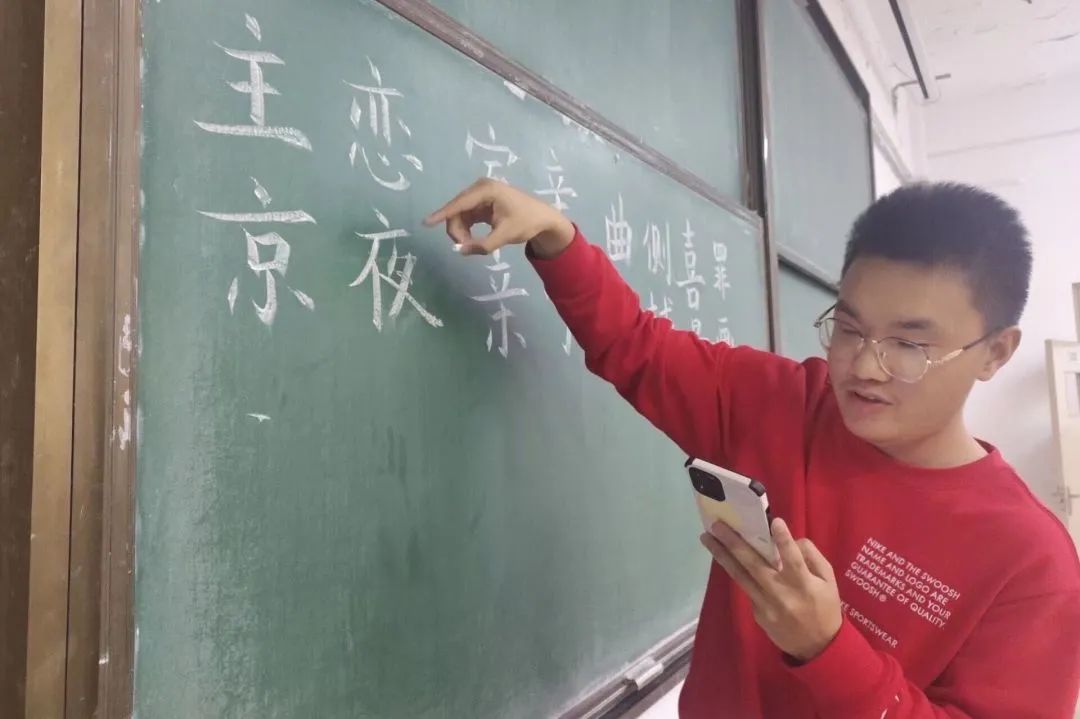 主 恋 辛 曲 侧 喜 罪
京 夜 亲
NIKE AND THE SWOOSH
NAME AND LOGO ARE
TRADEMARKS AND YOUR
GUARANTEE OF QUALITY.
SWOOSH ®
SPORTSWEAR